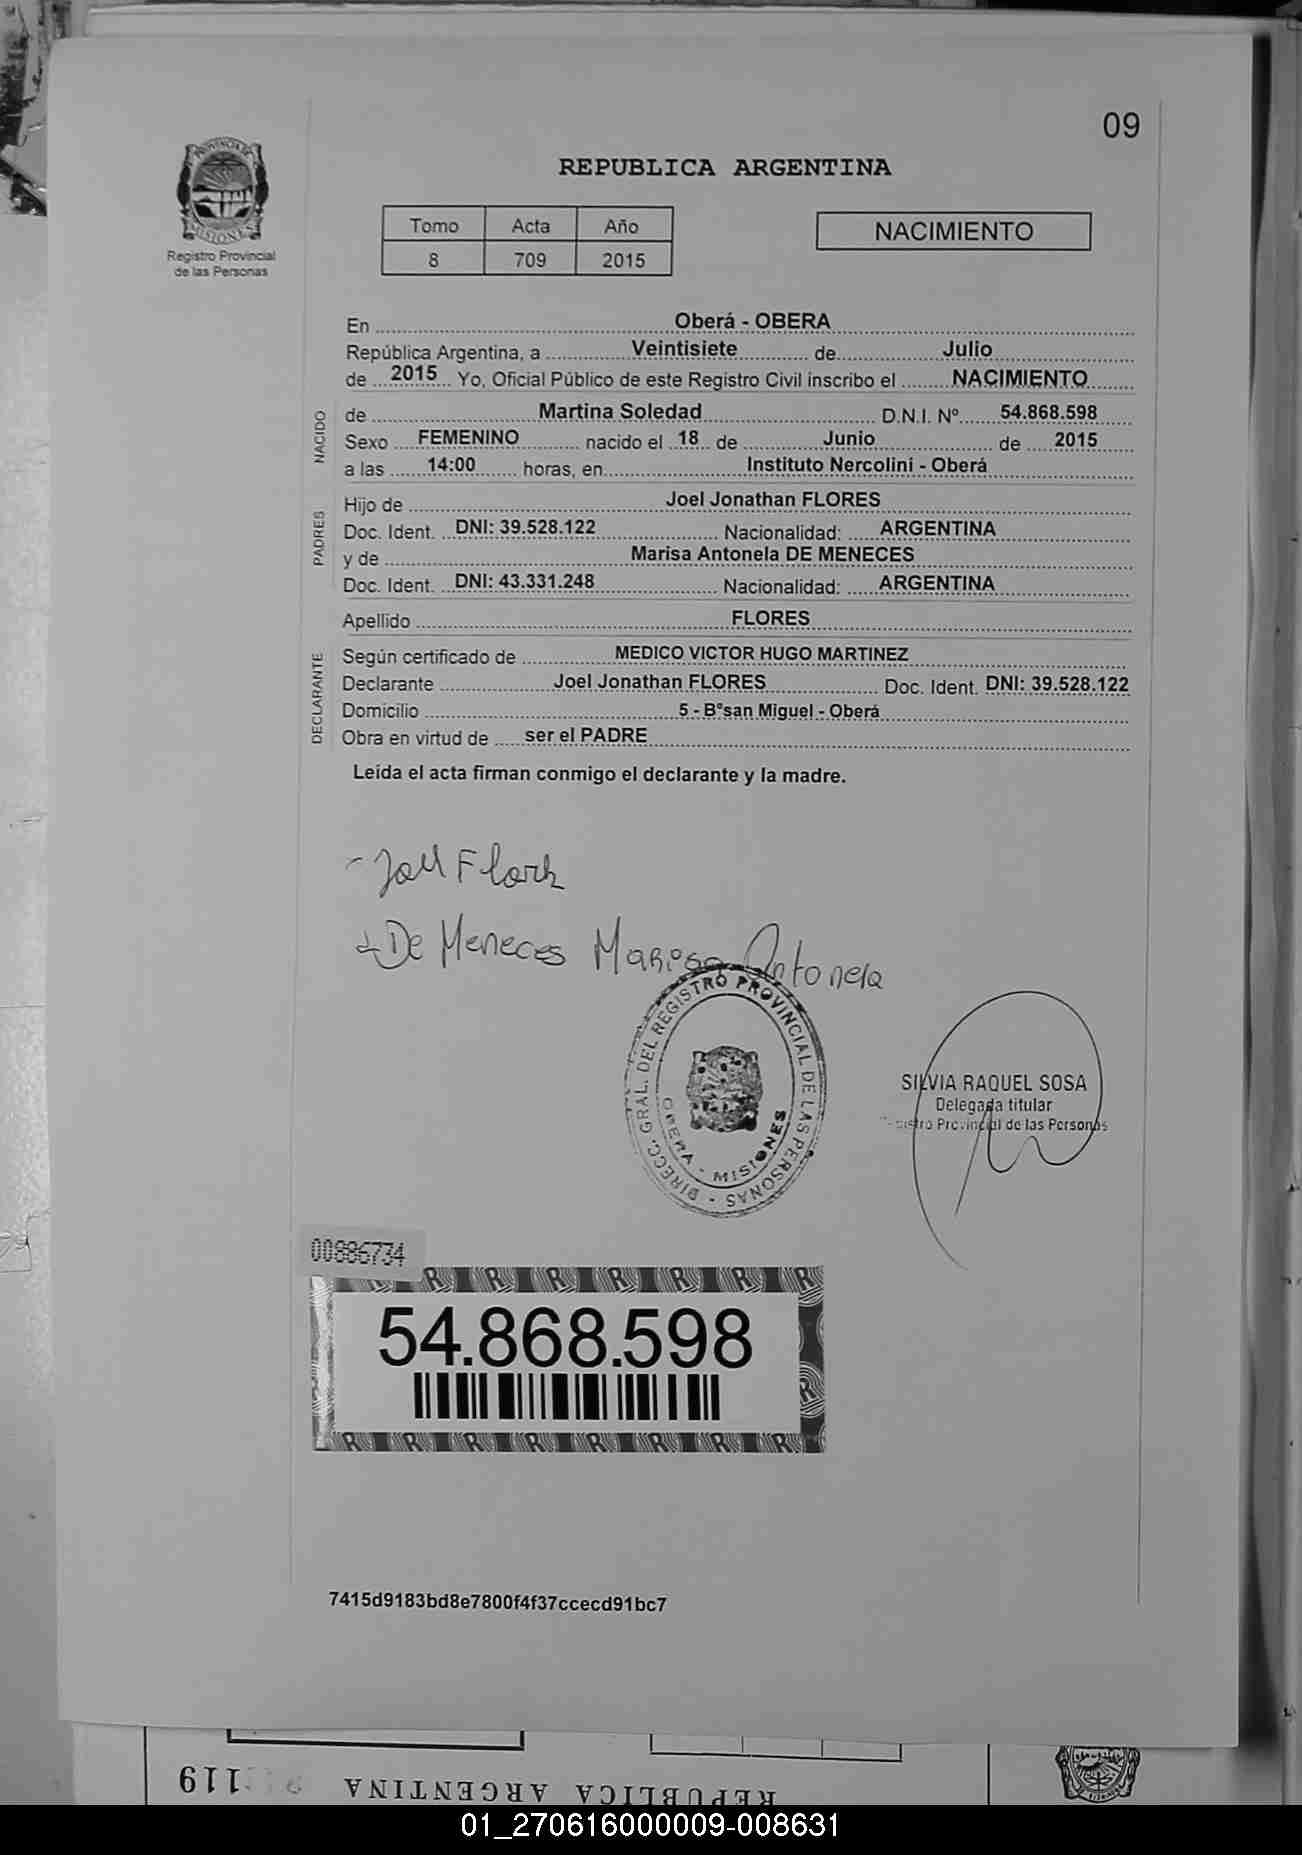 09
PROVINCIA DE
MISIONES
Registro Provincial
de las Personas
REPUBLICA ARGENTINA
Tomo Acta Año
8 709 2015
NACIMIENTO
En Oberá - OBERA
República Argentina, a Veintisiete de Julio
de 2015 Yo, Oficial Público de este Registro Civil inscribo el NACIMIENTO
NACIDO
de Martina Soledad D.N.I. Nº 54.868.598
Sexo FEMENINO nacido el 18 de Junio de 2015
a las 14:00 horas, en Instituto Nercolini - Oberá
PADRES
Hijo de Joel Jonathan FLORES
Doc. Ident. DNI: 39.528.122 Nacionalidad: ARGENTINA
y de Marisa Antonela DE MENECES
Doc. Ident. DNI: 43.331.248 Nacionalidad: ARGENTINA
Apellido FLORES
DECLARANTE
Según certificado de MEDICO VICTOR HUGO MARTINEZ
Declarante Joel Jonathan FLORES Doc. Ident. DNI: 39.528.122
Domicilio 5 - Bºsan Miguel - Oberá
Obra en virtud de ser el PADRE
Leída el acta firman conmigo el declarante y la madre.
De Meneces Marisa Antonela
DIRECC. GRAL. DEL REGISTRO PROVINCIAL DE LAS PERSONAS
OBERA - MISIONES
SILVIA RAQUEL SOSA
Delegada titular
Registro Provincial de las Personas
00886734
54.868.598
7415d9183bd8e7800f4f37ccecd91bc7
119
REPUBLICA ARGENTINA
01_270616000009-008631